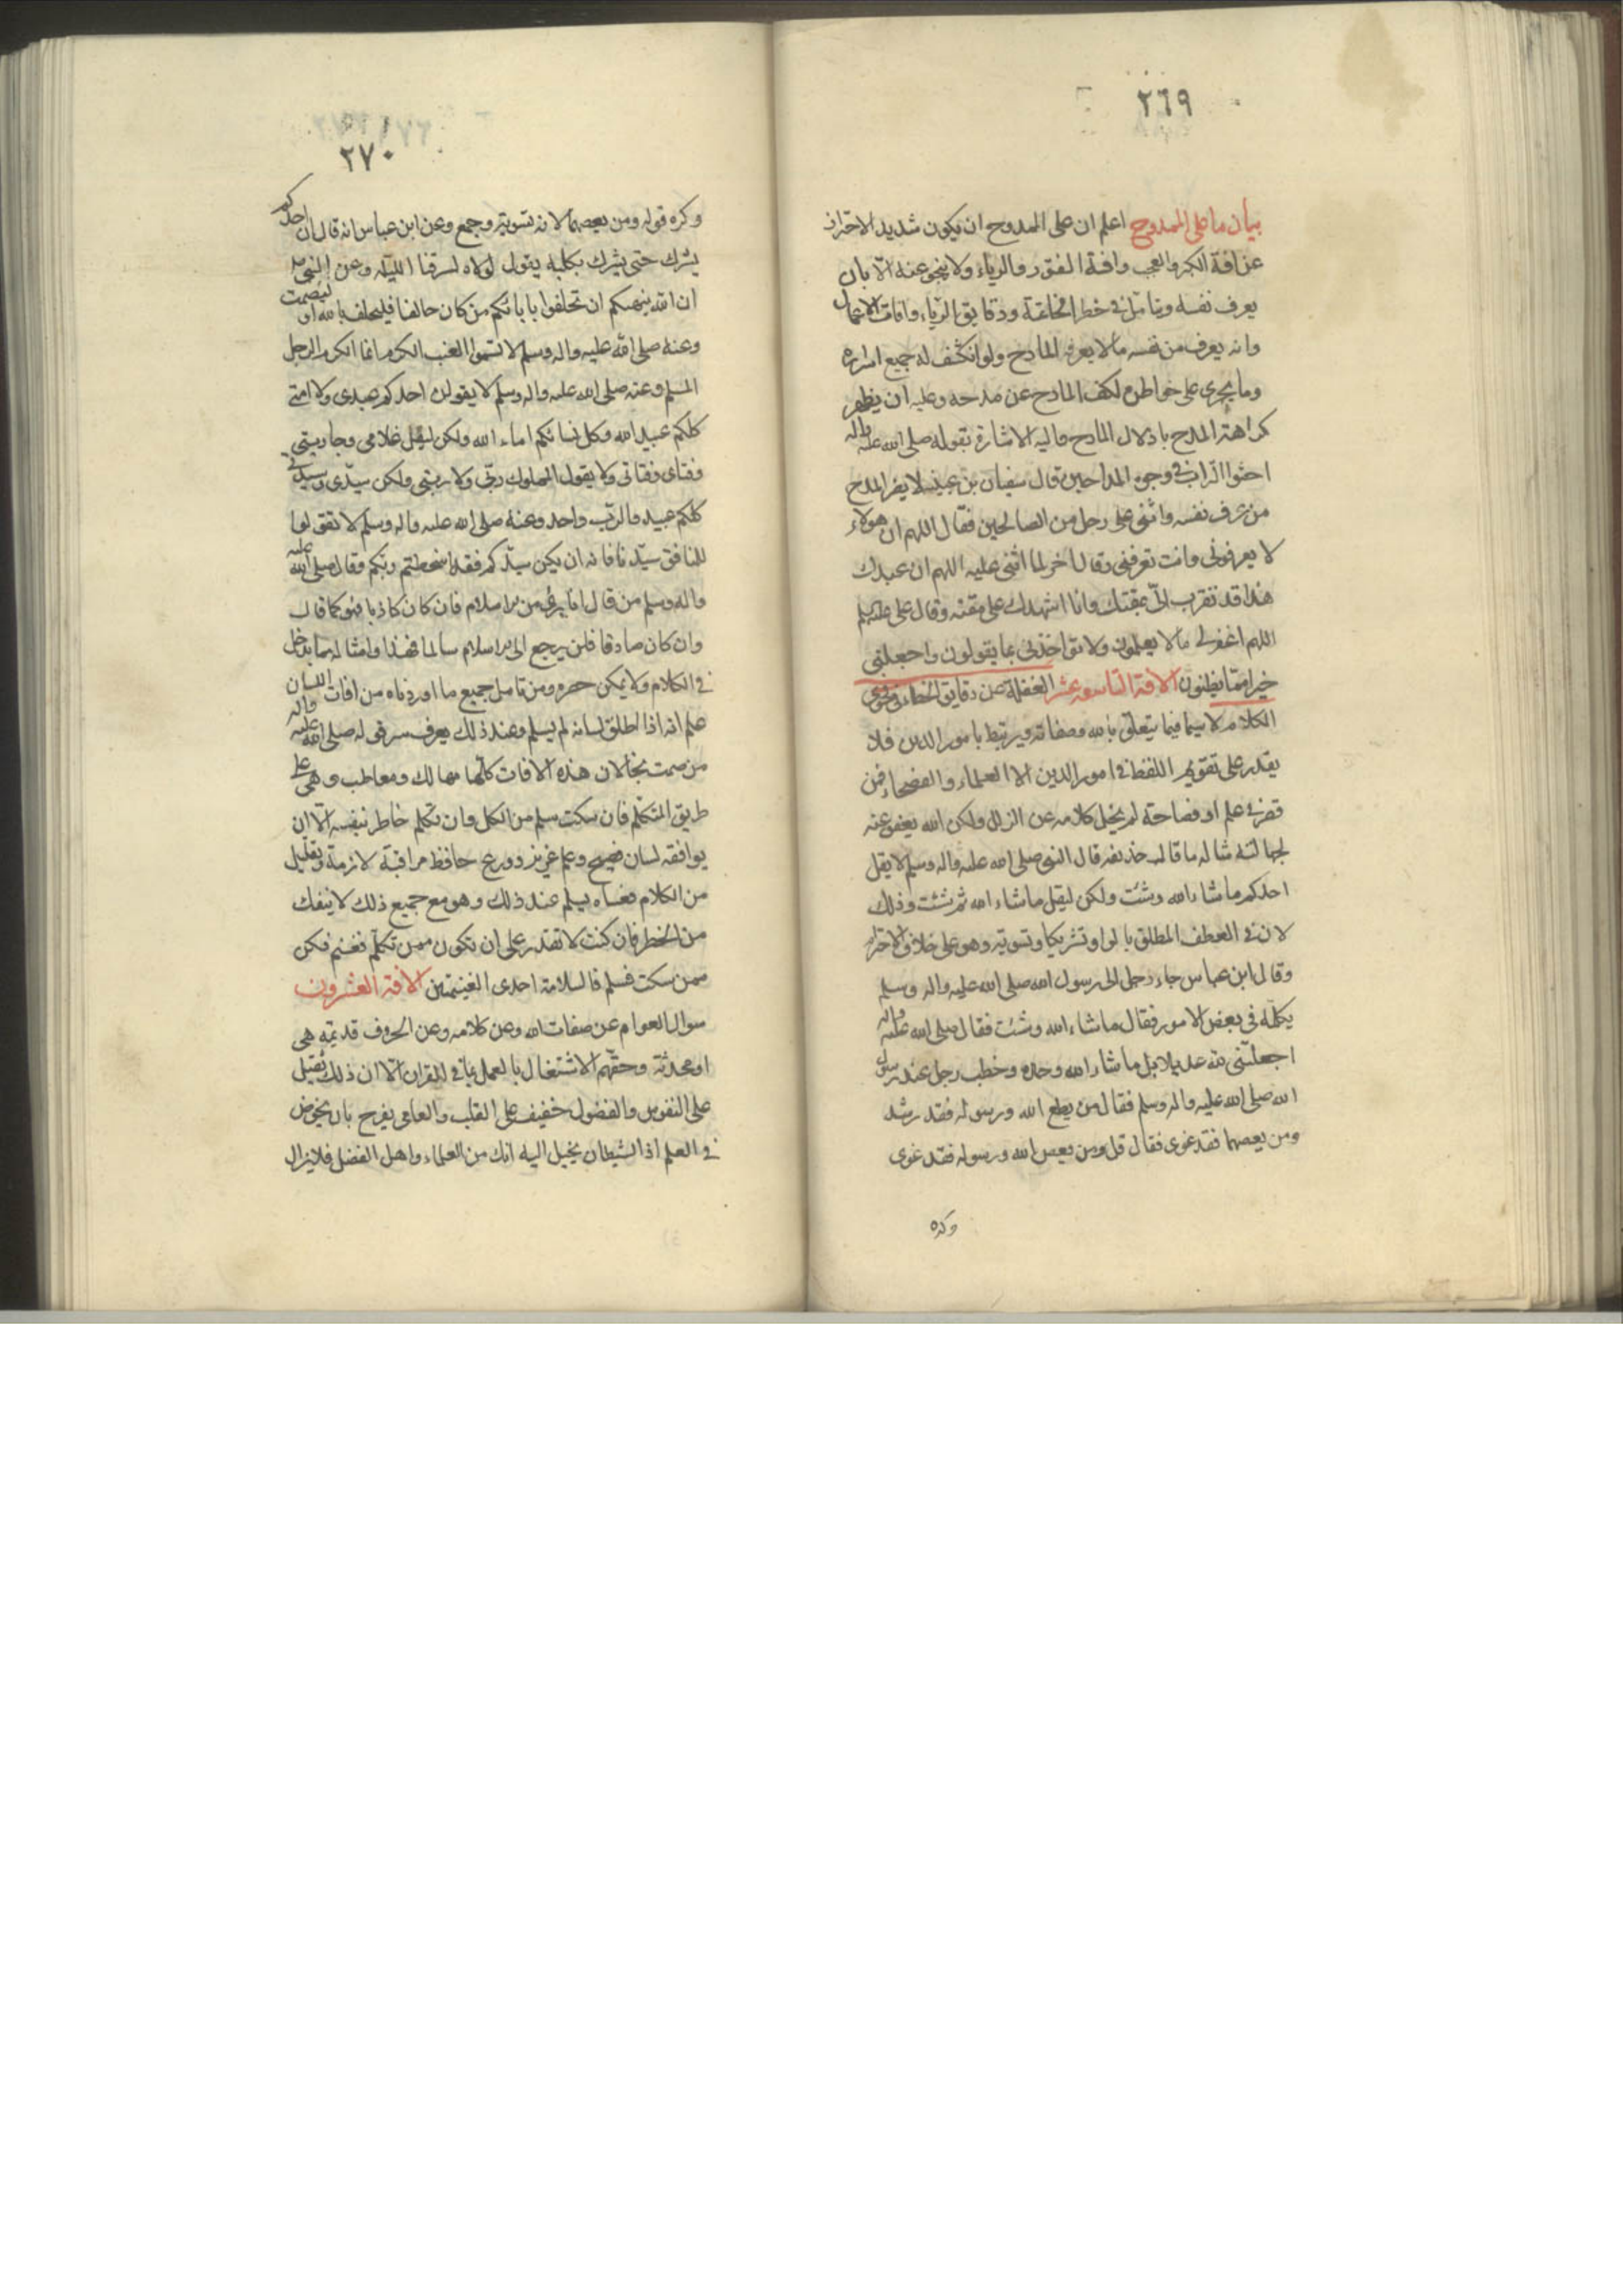 ٢٦٩
بيان ما على الممدوح اعلم ان على الممدوح ان يكون شديد الاحتراز
عن افة الكبر والعجب وافة الفتور والرياء ولا ينجو عنه الا بان
يعرف نفسه ويتامل في خطر الخاتمة ودقايق الرياء وافات الاعمال
وانه يعرف من نفسه مالا يعرفه المادح ولو انكشف له جميع اسراره
وما يجرى على خواطره لكف المادح عن مدحه وعليه ان يظهر
كراهة المدح باذلال المادح واليه الاشارة بقوله صلى الله عليه واله
احثوا التراب في وجوه المداحين وقال سفيان بن عيينه لا يضر المدح
من عرف نفسه واثنى على رجل من الصالحين فقال اللهم ان هولاء
لا يعرفونى وانت تعرفنى وقال اخر لما اثنى عليه اللهم ان عبدك
هذا قد تقرب الىّ بمقتك وانا اشهدك على مقته وقال على عليه السلم
اللهم اغفر لى مالا يعلمون ولا تواخذنى بما يقولون واجعلنى
خيرا مما يظنون الافة التاسعه عشر الغفلة عن دقايق الخطاء في فحوى
الكلام لا سيما فيما يتعلق بالله وصفاته ويرتبط بامور الدين فلا
يقدر على تقويم اللفظ في امور الدين الا العلماء والفصحاء فمن
قصر في علم او فصاحة لم يخل كلامه عن الزلل ولكن الله يعفو عنه
لجهالته مثاله ما قاله حذيفه قال النبى صلى الله عليه واله وسلم لا يقل
احدكم ما شاء الله وشئت ولكن ليقل ما شاء الله ثم شئت وذلك
لان في العطف المطلق بالواو تشريكا وتسوية وهو على خلاف الاحترام
وقال ابن عباس جاء رجل الى رسول الله صلى الله عليه واله وسلم
يكلمه في بعض الامور فقال ما شاء الله وشئت فقال صلى الله عليه واله
اجعلتنى لله عديلا بل ما شاء الله وحده وخطب رجل عند رسول
الله صلى الله عليه واله وسلم فقال من يطع الله ورسوله فقد رشد
ومن يعصهما فقد غوى فقال قل ومن يعص الله ورسوله فقد غوى
وكره
٢٧٠
وكره قوله ومن يعصهما لانه تسوية وجمع وعن ابن عباس انه قال ان احدكم
يشرك حتى يشرك بكلبه يقول لولاه لسرقنا الليله وعن النبى
ان الله ينهيكم ان تحلفوا بابائكم من كان حالفا فليحلف بالله او ليصمت
وعنه صلى الله عليه واله وسلم لا تسموا العنب الكرم انما الكرم الرجل
المسلم وعنه صلى الله عليه واله وسلم لا يقولن احدكم عبدى ولا امتى
كلكم عبيد الله وكل نسائكم اماء الله ولكن ليقل غلامى وجاريتى
وفتاى وفتاتى ولا يقول المملوك ربى ولا ربتى ولكن سيدى وسيدتى
كلكم عبيد والرب واحد وعنه صلى الله عليه واله وسلم لا تقولوا
للمنافق سيدنا فانه ان يكن سيدكم فقد اسخطتم ربكم وقال صلى الله عليه
واله وسلم من قال انا برئ من الاسلام فان كان كاذبا فهو كما قال
وان كان صادقا فلن يرجع الى الاسلام سالما فهذا وامثاله مما يدخل
في الكلام ولا يمكن حصره ومن تامل جميع ما اوردناه من افات اللسان
علم انه اذا اطلق لسانه لم يسلم وعند ذلك يعرف سر قوله صلى الله عليه واله
من صمت نجا لان هذه الافات كلها مهالك ومعاطب وهى على
طريق المتكلم فان سكت سلم من الكل وان تكلم خاطر بنفسه الا ان
يوافقه لسان فصيح وعلم غزير وورع حافظ ومراقبة لازمة وتقليل
من الكلام فعساه يسلم عند ذلك وهو مع جميع ذلك لا ينفك
من الخطر فان كنت لا تقدر على ان تكون ممن تكلم فغنم فكن
ممن سكت فسلم فالسلامة احدى الغنيمتين الافة العشرون
سوال العوام عن صفات الله وعن كلامه وعن الحروف قديمة هى
او محدثة وحقهم الاشتغال بالعمل بما في القران الا ان ذلك ثقيل
على النفوس والفضول خفيف على القلب والعامى يفرح بان يخوض
في العلم اذ الشيطان يخيل اليه انك من العلماء واهل الفضل فلا يزال